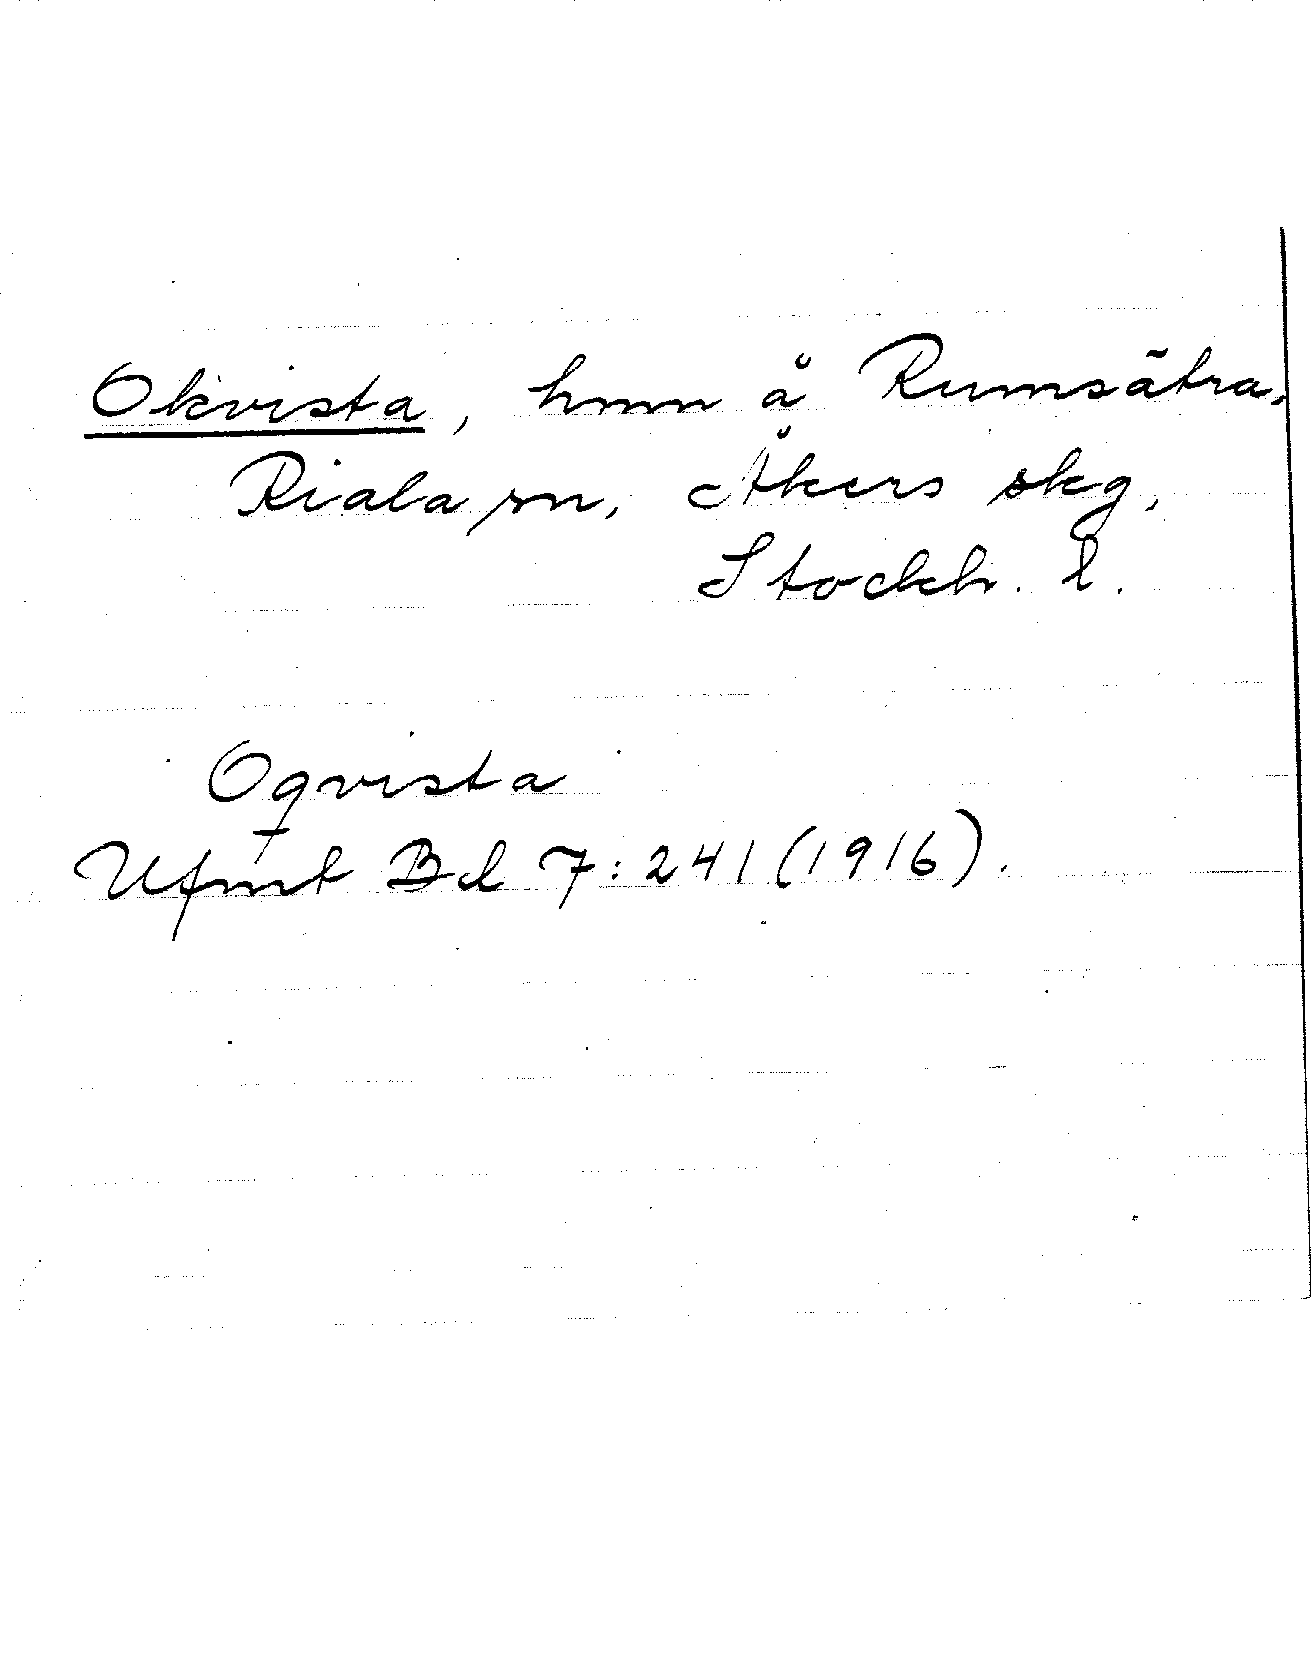 Okvista, hmn å Rumsätra,
Riala sn, Åkers skg,
Stockh. l.
Oqvista
Ufmt Bd 7:241 (1916).